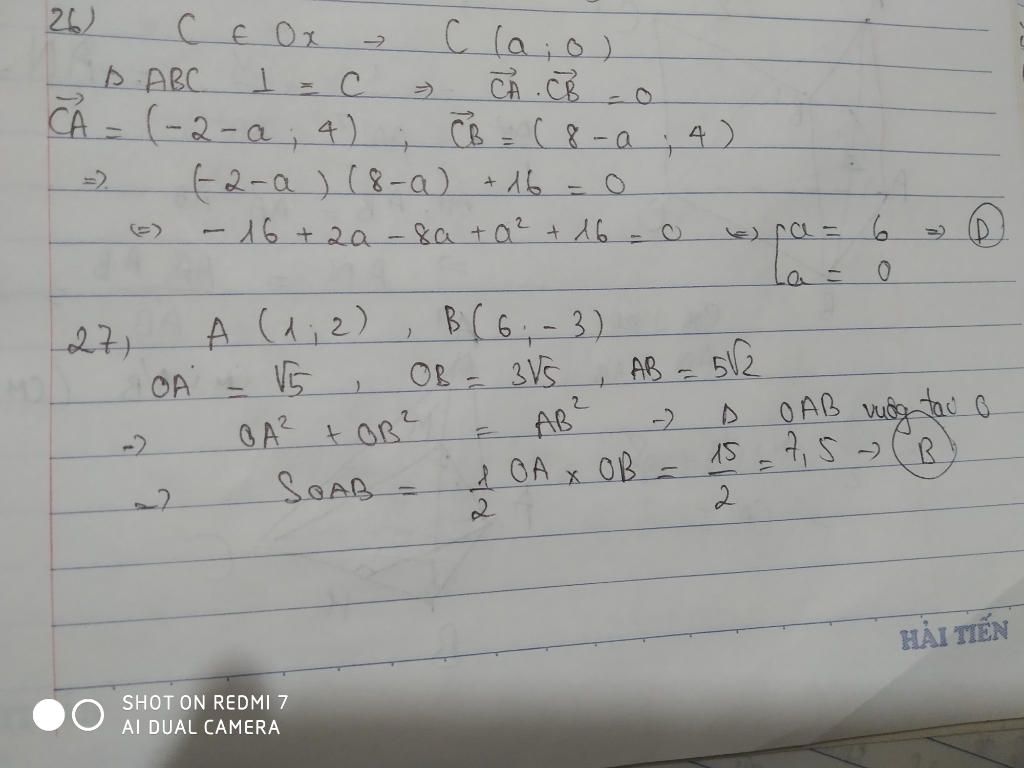 26) C ∈ Ox → C (a ; 0)
Δ ABC ⊥ = C ⇒ \overrightarrow{CA} . \overrightarrow{CB} = 0
\overrightarrow{CA} = (-2-a ; 4) ; \overrightarrow{CB} = (8-a ; 4)
⇒ (-2-a) (8-a) + 16 = 0
⇔ -16 + 2a - 8a + a² + 16 = 0 ⇔ [ a = 6 ⇒ D
a = 0
27, A (1 ; 2) , B(6 ; -3)
OA = √5 , OB = 3√5 , AB = 5√2
→ OA² + OB² = AB² → Δ OAB vuông tại O
→ SOAB = 1/2 OA x OB = 15/2 = 7,5 → B
HẢI TIẾN
SHOT ON REDMI 7
AI DUAL CAMERA